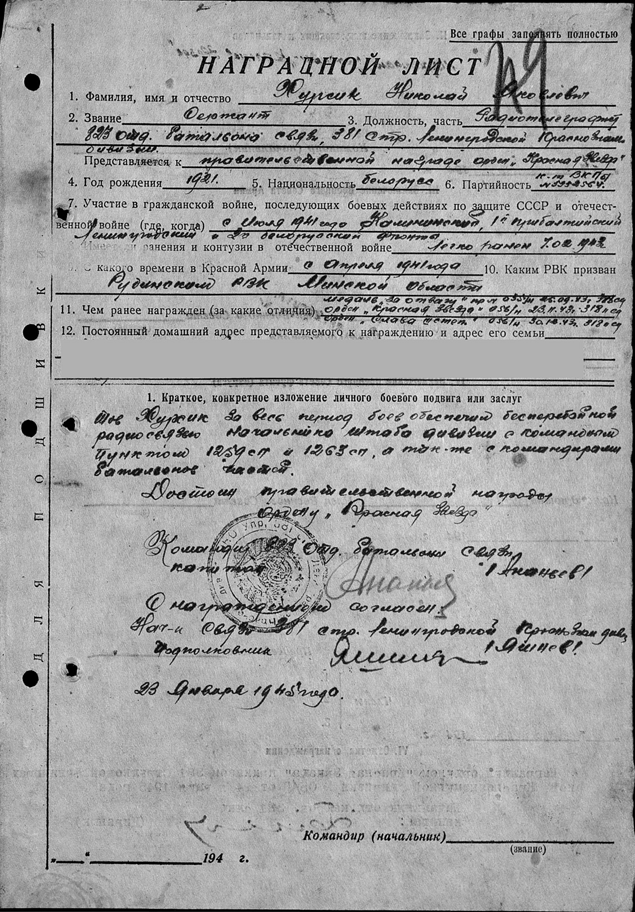 Все графы заполнять полностью
НАГРАДНОЙ ЛИСТ
1. Фамилия, имя и отчество Хурсик Николай Яковлевич
2. Звание Сержант 3. Должность, часть Радиотелеграфист
823 отд. батальона связи, 381 стр. Ленинградской Краснознам.
дивизии.
Представляется к правительственной награде орден „Красная Звезда"
4. Год рождения 1921. 5. Национальность белорус 6. Партийность к-т ВКП/б/
7. Участие в гражданской войне, последующих боевых действиях по защите СССР и отечест-
венной войне (где, когда) с Июля 1941 года Калининский, 1й Прибалтийский
Ленинградский и 2й белорусский фронта
ранения и контузии в отечественной войне Легко ранен 7.02 1942
С какого времени в Красной Армии с Апреля 1941 года 10. Каким РВК призван
Руденским РВК Минской области
11. Чем ранее награжден (за какие отличия) медаль „За отвагу"
орден „Красная Звезда"
орден „Слава
12. Постоянный домашний адрес представляемого к награждению и адрес его семьи
1. Краткое, конкретное изложение личного боевого подвига или заслуг
Тов Хурсик за весь период боев обеспечил бесперебойной
радиосвязью начальника штаба дивизии с командным
Пунктом 1259 сп и 1263 сп, а так-же с командирами
батальонов частей.
Достоин правительственной награды
Ордену „Красная Звезда"
Командир 823 Отд. батальона связи
капитан /Ананьев/
С награждением согласен.
Нач-к Связи 381 стр. Ленинградской Краснознам див
Подполковник /Яшнев/
23 Января 1945 года.
Командир (начальник)
(звание)
194 г.
ДЛЯ ПОДШИВК